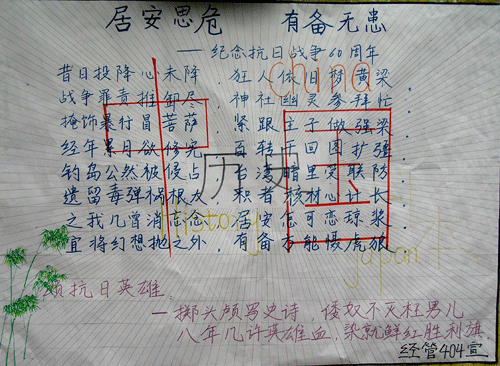 居安思危 有备无患
——纪念抗日战争60周年
昔日投降心未降，狂人依旧梦黄梁
战争罪责推卸尽，神社幽灵参拜忙
掩饰暴行冒菩萨，紧跟主子做强梁
经年累月欲修宪，百转千回图扩强
钓岛公然被侵占，台湾暗里受联防
遗留毒弹祸根友，积者核材心计长
之我几曾消忘念，居安怎可恋琼浆
宜将幻想抛之外，有备方能慑虎狼
中 国
历史
China
History
japan
颂抗日英雄：
—掷头颅写史诗，倭奴不灭枉男儿
八年几许英雄血，染就鲜红胜利旗
经管404宣